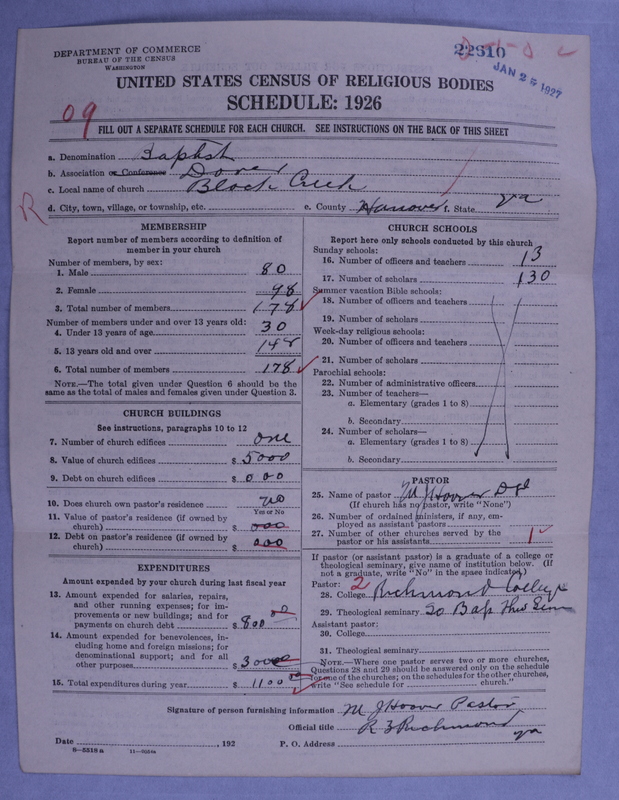 DEPARTMENT OF COMMERCE
BUREAU OF THE CENSUS
WASHINGTON
22810
JAN 25 1927
UNITED STATES CENSUS OF RELIGIOUS BODIES
SCHEDULE: 1926
09
FILL OUT A SEPARATE SCHEDULE FOR EACH CHURCH. SEE INSTRUCTIONS ON THE BACK OF THIS SHEET
a. Denomination Baptist
b. Association or Conference Dover
c. Local name of church Black Creek
d. City, town, village, or township, etc. e. County Hanover f. State Va
R
MEMBERSHIP
Report number of members according to definition of
member in your church
Number of members, by sex:
1. Male 80
2. Female 98
3. Total number of members 178
Number of members under and over 13 years old:
4. Under 13 years of age 30
5. 13 years old and over 148
6. Total number of members 178
NOTE.—The total given under Question 6 should be the
same as the total of males and females given under Question 3.
CHURCH BUILDINGS
See instructions, paragraphs 10 to 12
7. Number of church edifices one
8. Value of church edifices $ 5000
9. Debt on church edifices $ 000
10. Does church own pastor's residence? no
Yes or No
11. Value of pastor's residence (if owned by
church) $ 000
12. Debt on pastor's residence (if owned by
church) $ 000
EXPENDITURES
Amount expended by your church during last fiscal year
13. Amount expended for salaries, repairs,
and other running expenses; for im-
provements or new buildings; and for
payments on church debt $ 800 00
14. Amount expended for benevolences, in-
cluding home and foreign missions; for
denominational support; and for all
other purposes $ 300 00
15. Total expenditures during year $ 1100 00
CHURCH SCHOOLS
Report here only schools conducted by this church
Sunday schools:
16. Number of officers and teachers 13
17. Number of scholars 130
Summer vacation Bible schools:
18. Number of officers and teachers
19. Number of scholars
Week-day religious schools:
20. Number of officers and teachers
21. Number of scholars
Parochial schools:
22. Number of administrative officers
23. Number of teachers—
a. Elementary (grades 1 to 8)
b. Secondary
24. Number of scholars—
a. Elementary (grades 1 to 8)
b. Secondary
PASTOR
25. Name of pastor M J Hoover
(If church has no pastor, write "None")
26. Number of ordained ministers, if any, em-
ployed as assistant pastors
27. Number of other churches served by the
pastor or his assistants 1
If pastor (or assistant pastor) is a graduate of a college or
theological seminary, give name of institution below. (If
not a graduate, write "No" in the space indicated)
Pastor: 2
28. College Richmond College
29. Theological seminary So Bap Theo Sem
Assistant pastor:
30. College
31. Theological seminary
NOTE.—Where one pastor serves two or more churches,
Questions 28 and 29 should be answered only on the schedule
for one of the churches; on the schedules for the other churches,
write "See schedule for church."
Signature of person furnishing information M J Hoover Pastor
Official title R 3 Richmond
Va
Date , 192 P. O. Address
8—5518 a